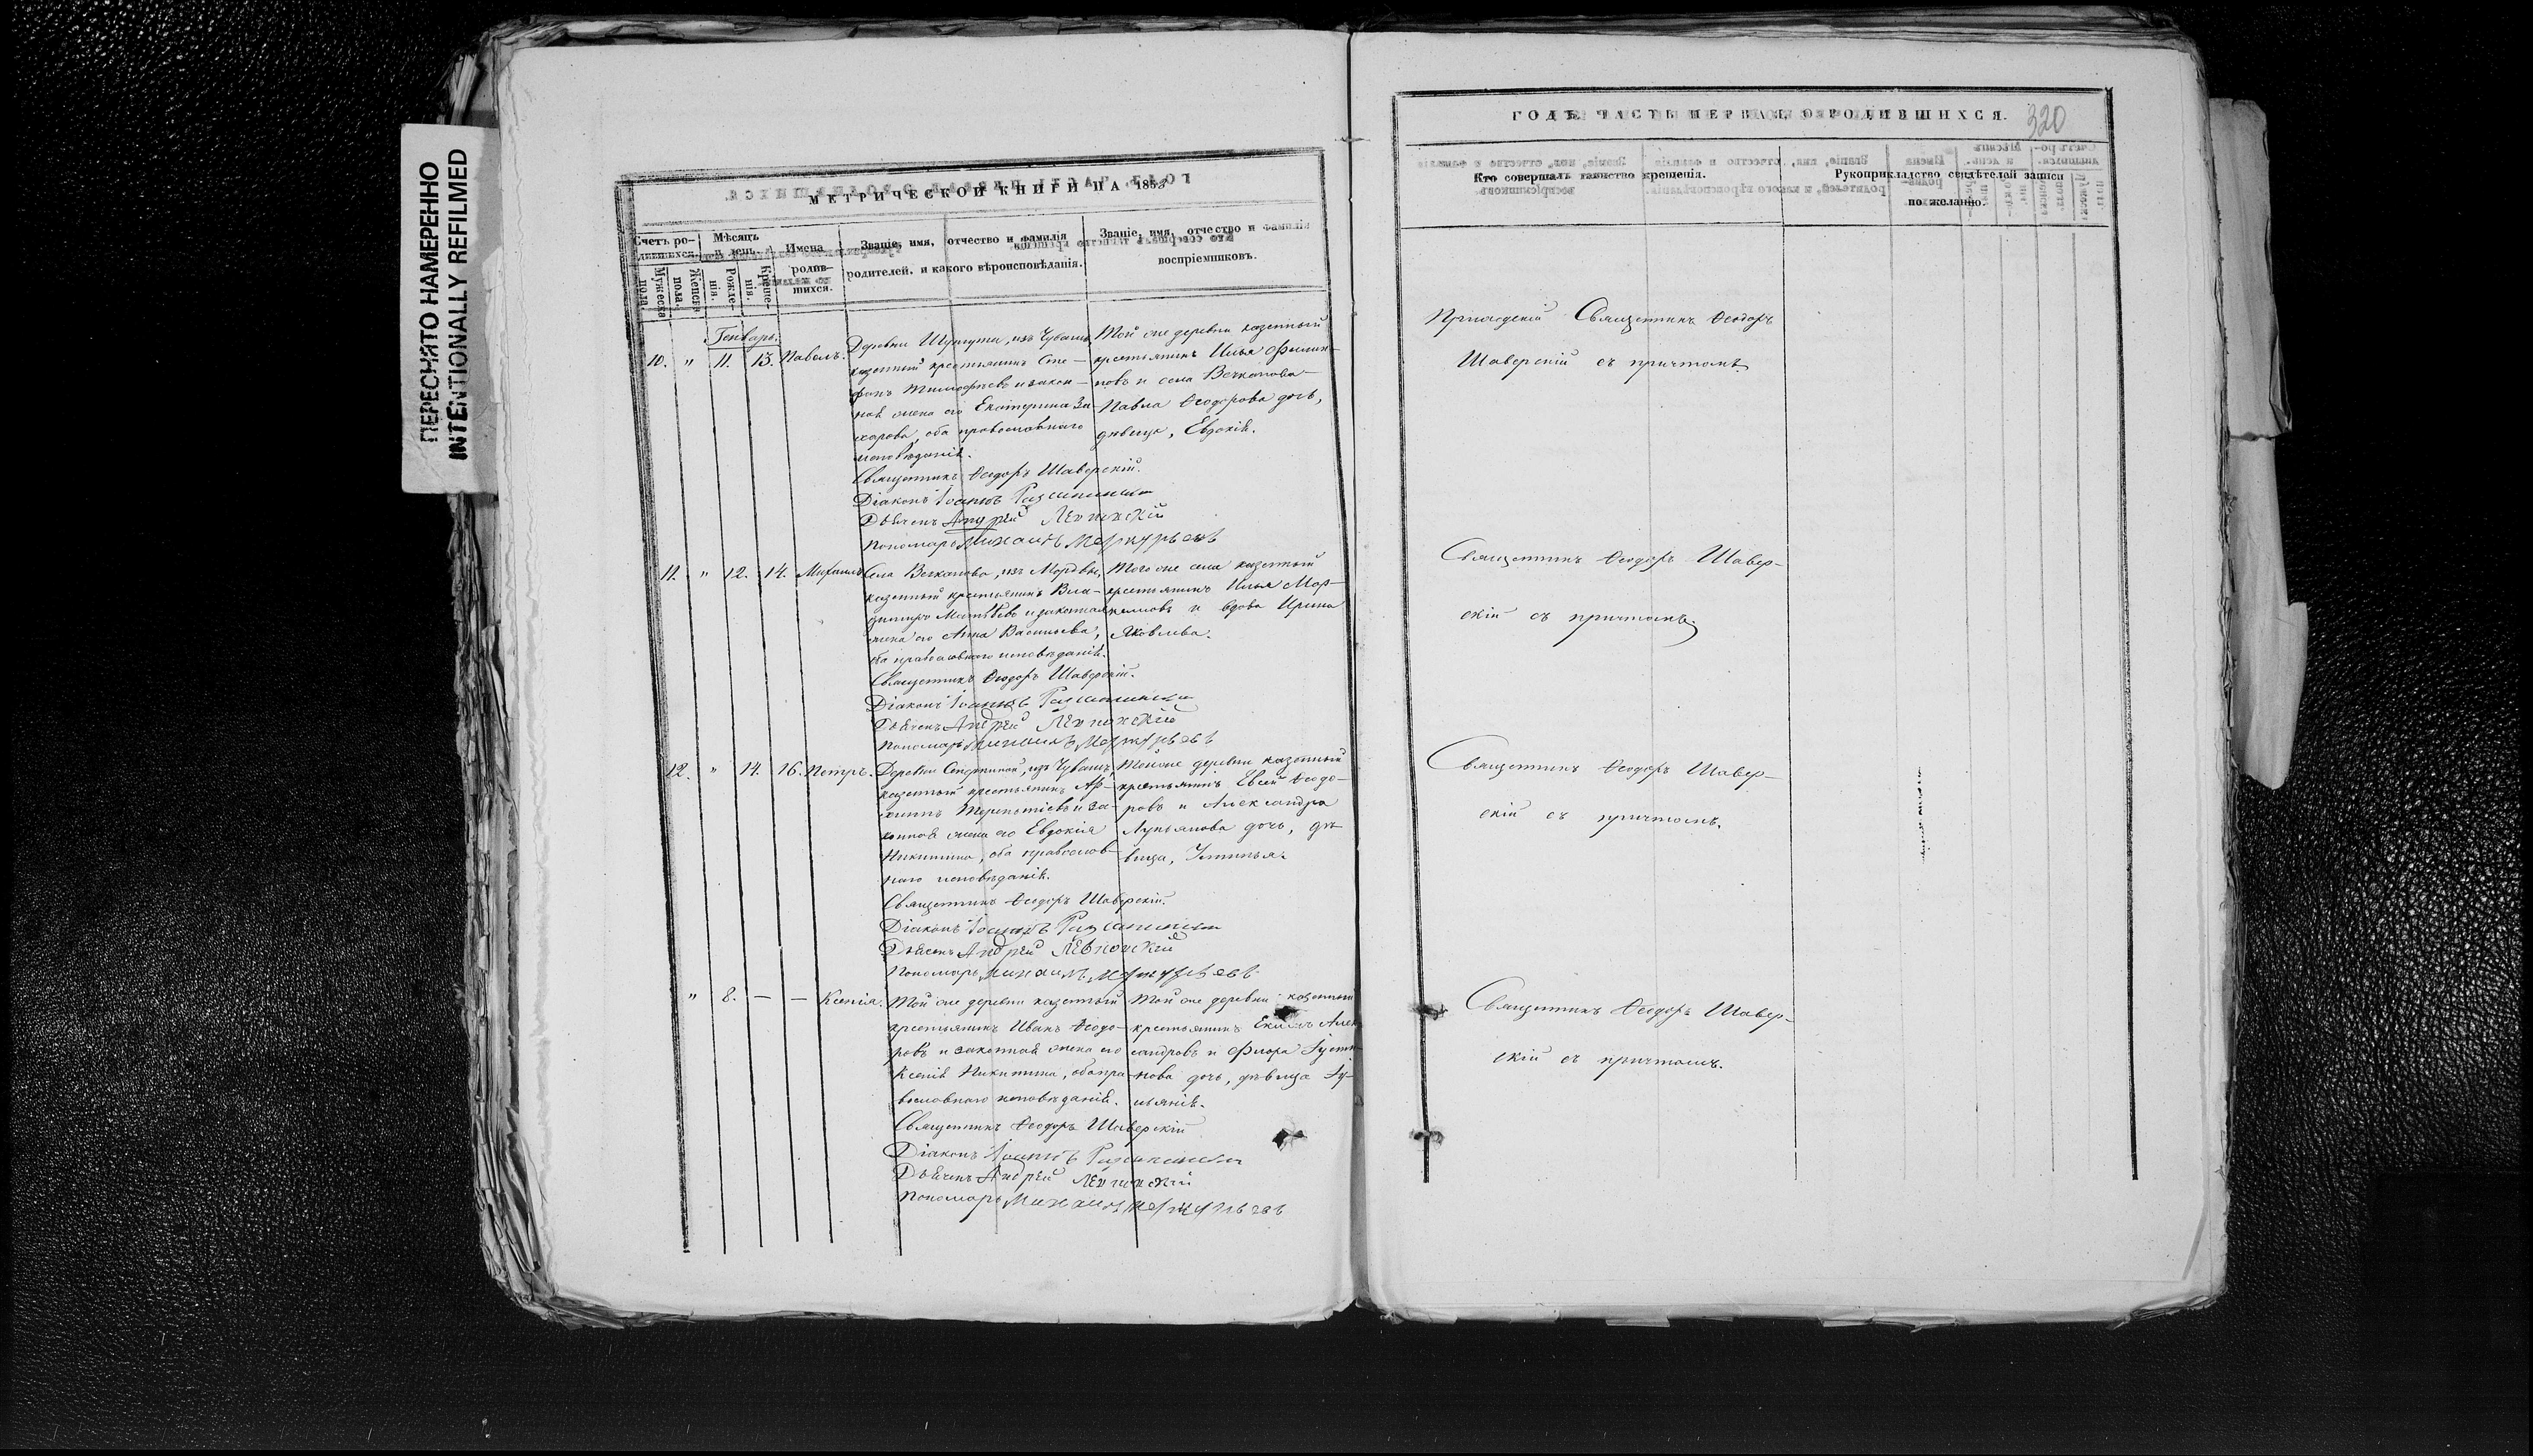 ПЕРЕСНЯТО НАМЕРЕННО
INTENTIONALLY REFILMED
МЕТРИЧЕСКОЙ КНИГИ НА 1853
Счетъ ро-
дившихся.
Мужеска
пола.
Женска
пола.
Мѣсяцъ
и день.
Рожде-
нія.
Креще-
нія.
Имена
родив-
шихся.
Званіе, имя, отчество и фамилія
родителей, и какого вѣроисповѣданія.
Званіе, имя, отчество и фамилія
воспріемниковъ.
Генварь.
10. " 11. 13. Павелъ.
Деревни из Чувашъ
казенный крестьянинъ Сте-
фанъ Тимофѣевъ и закон-
ная жена его Екатерина За-
харова, оба православнаго
исповѣданія.
Священникъ Ѳеодоръ Шаверскій.
Діаконъ Іоаннъ
Дьячекъ Андрей
Пономарь Михаилъ Меркурьевъ
Той же деревни казенный
крестьянинъ Илья Филип-
повъ и села Вечканова
Павла Ѳеодорова дочь,
дѣвица, Евдокія.
11. " 12. 14. Михаилъ
Села Вечканова, изъ Мордвы,
казенный крестьянинъ Вла-
димиръ Матвѣевъ и законная
жена его Анна Васильева,
оба православнаго исповѣданія.
Священникъ Ѳеодоръ Шаверскій.
Діаконъ Іоаннъ
Дьячекъ Андрей
Пономарь Михаилъ Меркурьевъ
Того же села казенный
крестьянинъ Илья
и вдова Ирина
Яковлева.
12. " 14. 16. Петръ.
Деревни изъ Чувашъ,
казенный крестьянинъ Ар-
хипъ Терентіевъ и за-
конная жена его Евдокія
Никитина, оба православ-
наго исповѣданія.
Священникъ Ѳеодоръ Шаверскій.
Діаконъ Іоаннъ
Дьячекъ Андрей
Пономарь Михаилъ Меркурьевъ
Той же деревни казенный
крестьянинъ Евсей Ѳеодо-
ровъ и Александра
Лукьянова дочь, дѣ-
вица, Устинья.
" 8. — — Ксенія.
Той же деревни казенный
крестьянинъ Иванъ Ѳеодо-
ровъ и законная жена его
Ксенія Никитина, оба пра-
вославнаго исповѣданія.
Священникъ Ѳеодоръ Шаверскій
Діаконъ Іоаннъ
Дьячекъ Андрей
Пономарь Михаилъ Меркурьевъ
Той же деревни казенный
крестьянинъ Екимъ Алек
сандровъ и Флора
нова дочь, дѣвица Іу-
ліанія.
ГОДЪ ЧАСТЬ ПЕРВАЯ, О РОДИВШИХСЯ.
320
Кто совершалъ таинство крещенія.
Рукоприкладство свидѣтелей записи
по желанію.
Приходскій Священникъ Ѳеодоръ
Шаверскій съ причтомъ.
Священникъ Ѳеодоръ Шавер-
скій съ причтомъ.
Священникъ Ѳеодоръ Шавер-
скій съ причтомъ.
Священникъ Ѳеодоръ Шавер-
скій съ причтомъ.